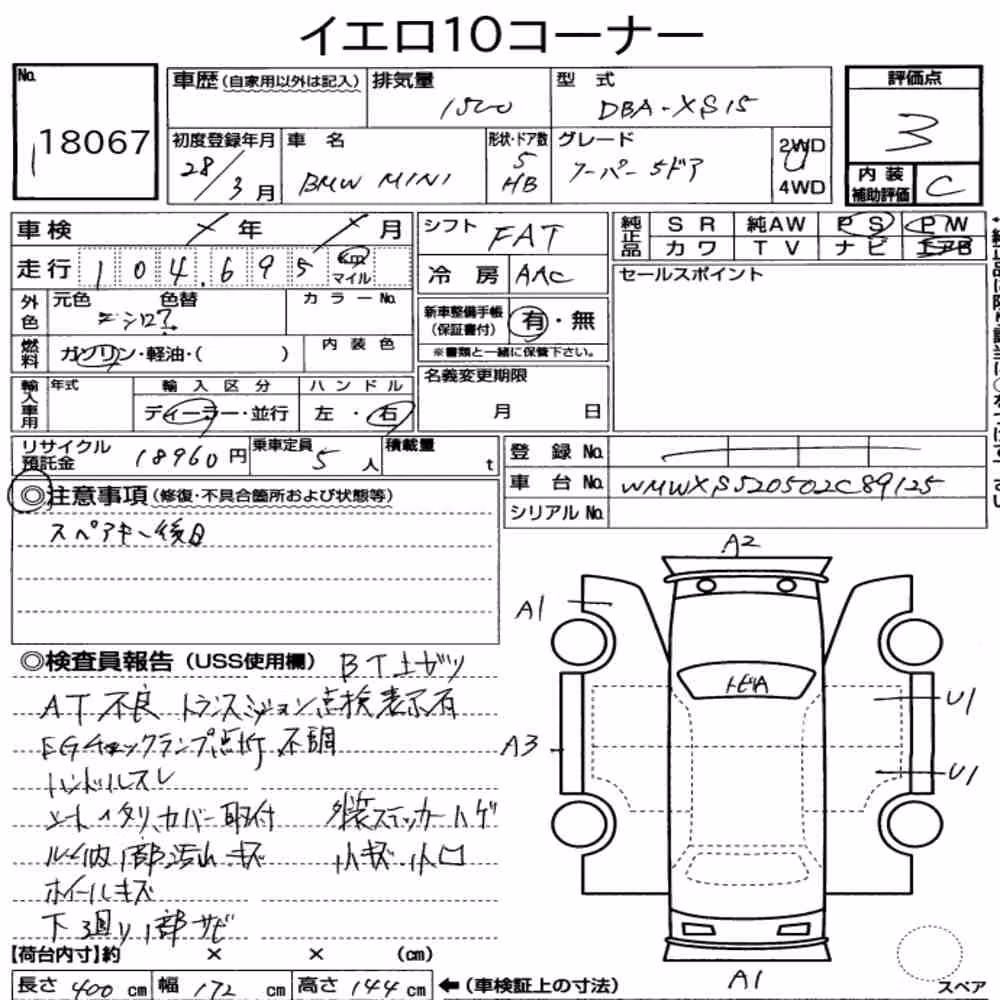 イエロ10コーナー
No. 18067
車歴(自家用以外は記入)
排気量 1500
型式 DBA-XS15
評価点 3
初度登録年月 28/3月
車名 BMW MINI
形状・ドア数 5 HB
グレード クーパー 5ドア
2WD
4WD
内装補助評価 C
車検 年 月
シフト FAT
純正品 SR 純AW PS PW
カワ TV ナビ エアB
走行 104,695 km マイル
冷房 AAC
セールスポイント
外色 元色 色替
カラーNo.
新車整備手帳(保証書付) 有・無
※書類と一緒に保管下さい。
燃料 ガソリン・軽油・( )
内装色
名義変更期限
月 日
輸入車用 年式
輸入区分 ディーラー・並行
ハンドル 左・右
リサイクル預託金 18960円
乗車定員 5人
積載量 t
登録No.
車台No. WMWXS520502C89125
シリアルNo.
◎注意事項(修復・不具合箇所および状態等)
スペアキー後日
A2
A1
トビA
U1
A3
U1
A1
◎検査員報告(USS使用欄)
AT不良 トランスミッション点検表示有
EGチェックランプ点灯 不調
ハンドルスレ
シートイタリ、カバー取付
外装ステッカーハゲ
ルーム内1部汚れ・キズ
小キズ・小凹
ホイールキズ
下廻り1部サビ
【荷台内寸】約 × × (cm)
長さ 400 cm 幅 172 cm 高さ 144 cm
←(車検証上の寸法)
スペア